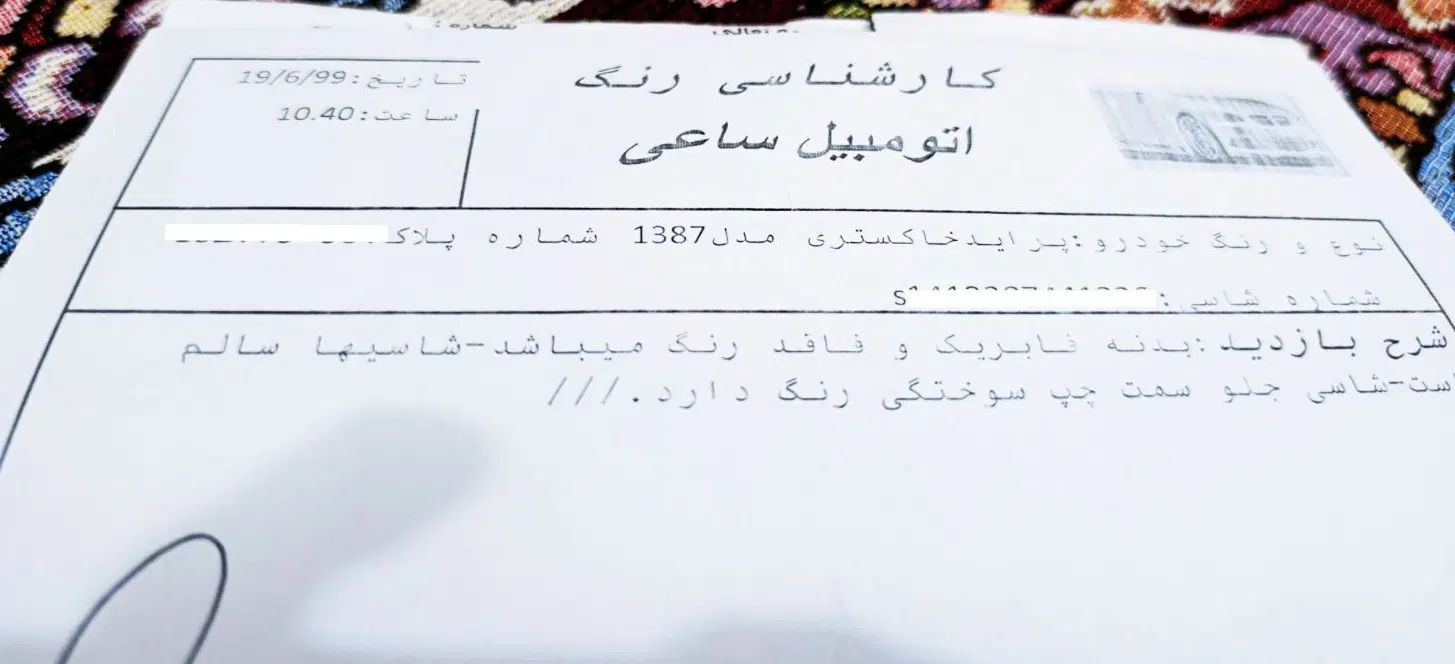 شماره:
کارشناسی رنگ
اتومبیل ساعی
تاریخ:19/6/99
ساعت:10.40
نوع و رنگ خودرو:پرایدخاکستری مدل1387 شماره پلاک
شماره شاسی:s
شرح بازدید:بدنه فابریک و فاقد رنگ میباشد-شاسیها سالم
است-شاسی جلو سمت چپ سوختگی رنگ دارد.///